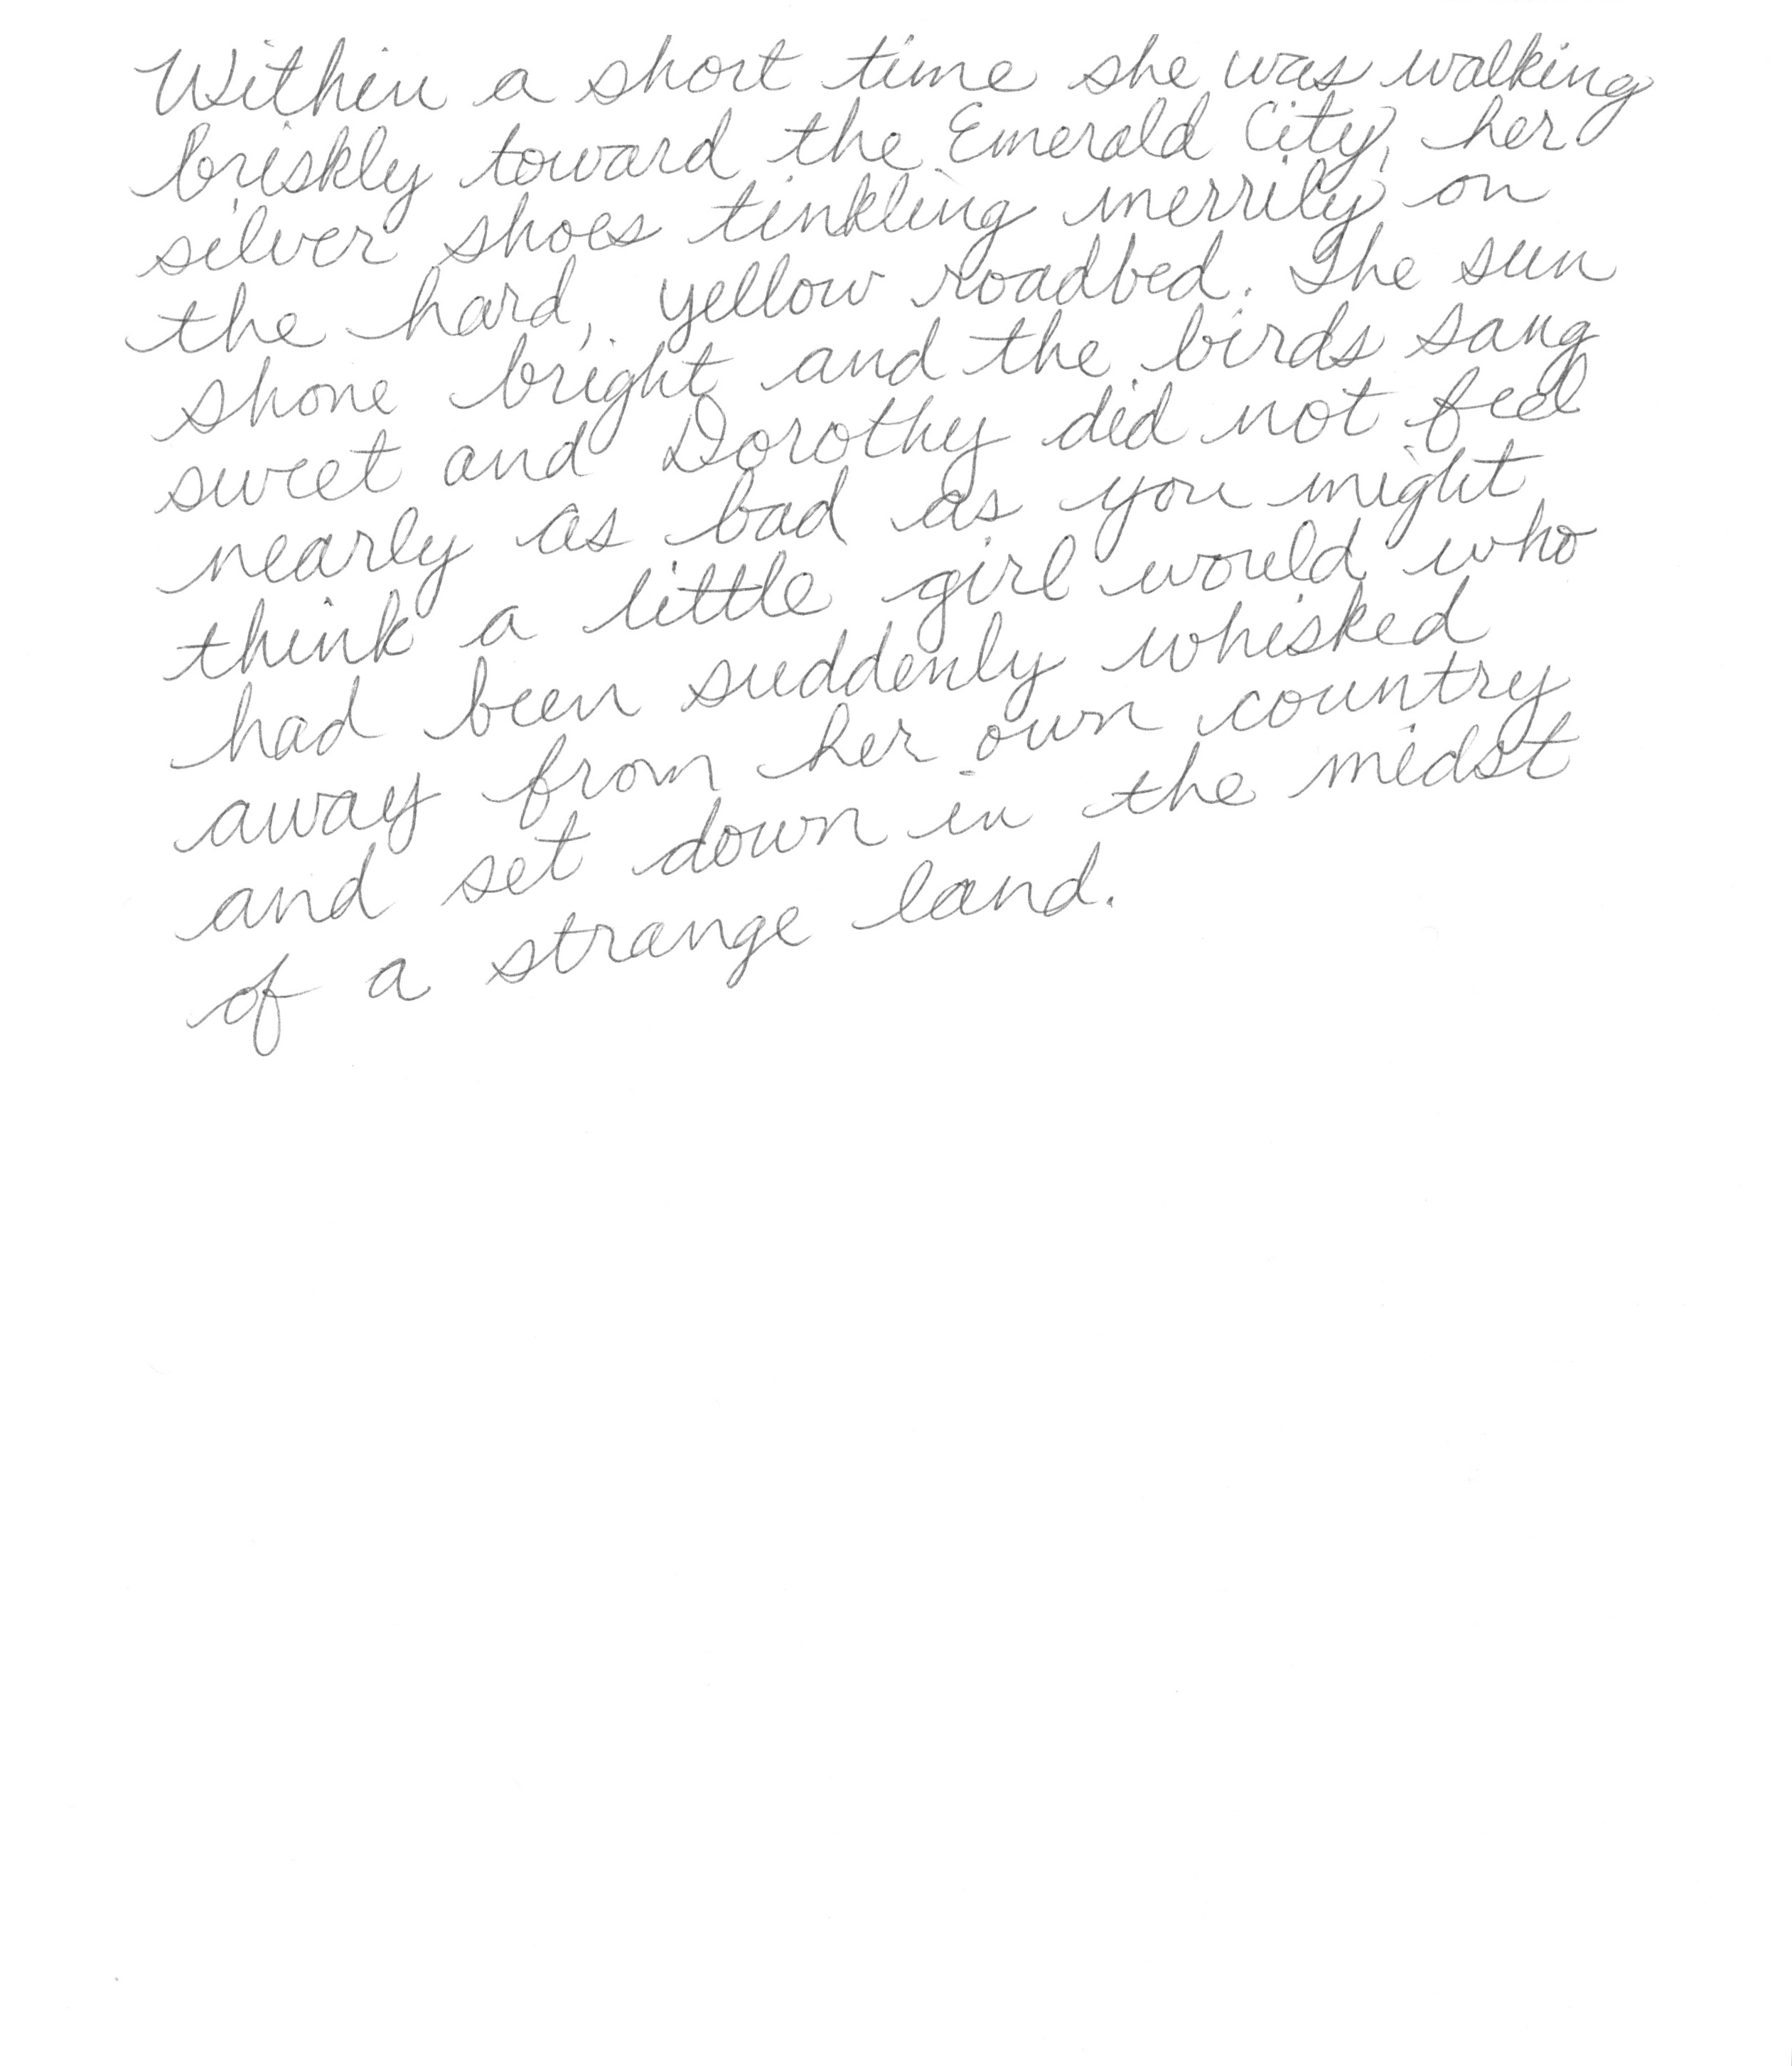 Within a short time she was walking
briskly toward the Emerald City, her
silver shoes tinkling merrily on
the hard, yellow roadbed. The sun
shone bright and the birds sang
sweet and Dorothy did not feel
nearly as bad as you might
think a little girl would who
had been suddenly whisked
away from her own country
and set down in the midst
of a strange land.